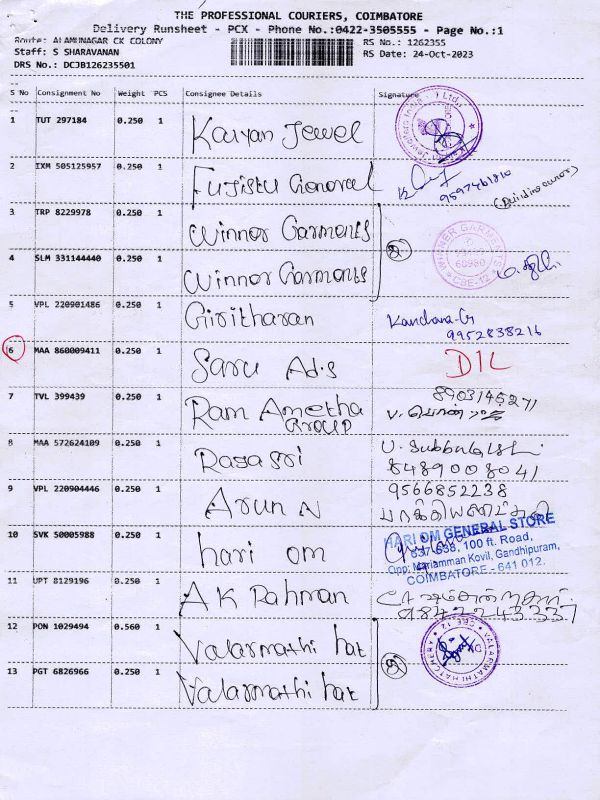 THE PROFESSIONAL COURIERS, COIMBATORE
Delivery Runsheet - PCX - Phone No.:0422-3505555 - Page No.:1
Route: ALAMUNAGAR CK COLONY
RS No.: 1262355
Staff: S SHARAVANAN
RS Date: 24-Oct-2023
DRS No.: DCJB126235501
S No Consignment No Weight PCS Consignee Details Signature
1 TUT 297184 0.250 1 Kalyan Jewel
2 IXM 505125957 0.250 1 Fujistu General
9597461810
(Building owner)
3 TRP 8229978 0.250 1 Winner Garments
2
WINNER GARMENTS
CBE-12
4 SLM 331144440 0.250 1 Winner Garments
5 VPL 220901486 0.250 1 Giritharan
Kandana-G
9952838216
6 MAA 860009411 0.250 1 Saru Ads
D1L
7 TVL 399439 0.250 1 Ram Ametha
Group
8903145271
8 MAA 572624109 0.250 1 Rasasri
8489008041
9 VPL 220904446 0.250 1 Arun N
9566852238
10 SVK 50005988 0.250 1 hari om
HARI OM GENERAL STORE
637-638, 100 ft. Road,
Opp: Mariamman Kovil, Gandhipuram,
COIMBATORE - 641 012.
11 UPT 8129196 0.250 1 A K Rahman
9842243337
12 PON 1029494 0.560 1 Valarmathi hat
2
VALARMATHI HATCHERY
CBE-12
13 PGT 6826966 0.250 1 Valarmathi hat